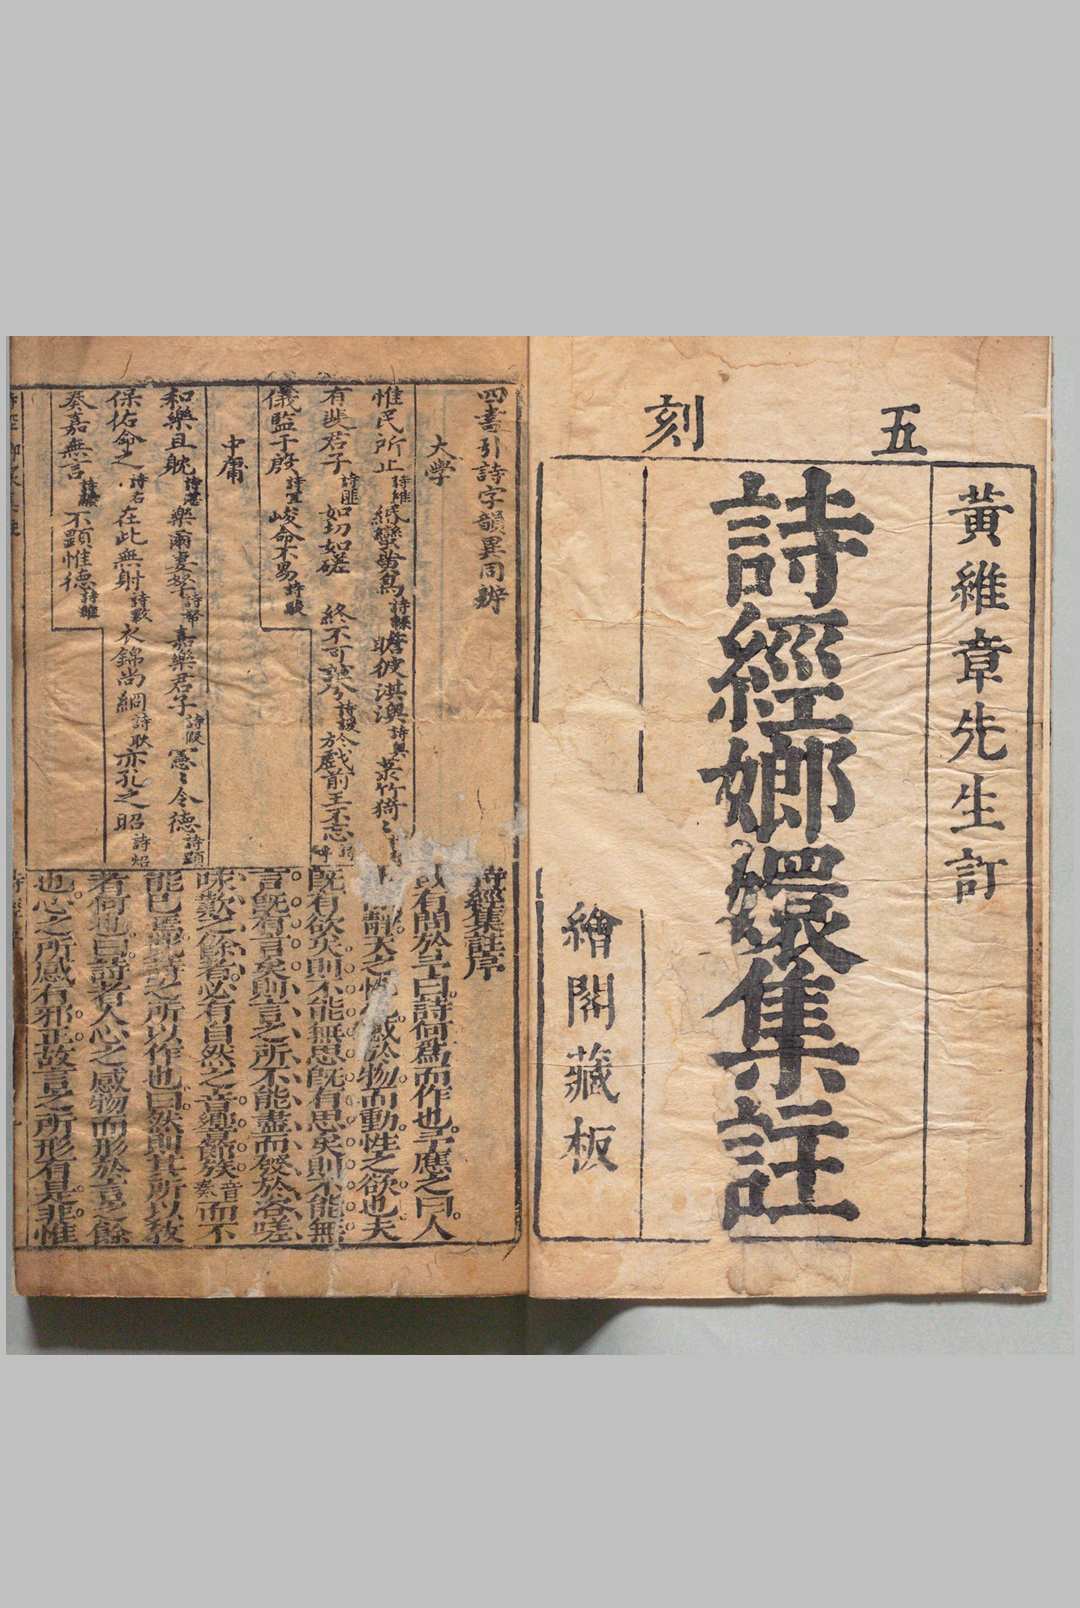 五刻
黃維章先生訂
詩經嫏嬛集註
繪閣藏板
四書引詩字韻異同辨
大學
惟民所止詩維緡蠻黃鳥詩緜瞻彼淇澳詩奧菉竹猗〻
有斐君子詩匪如切如磋 終不可諠兮詩諼於戲前王不忘
儀監于殷詩宜峻命不易詩駿
中庸
和樂且耽詩湛樂爾妻孥詩帑嘉樂君子詩假憲〻令德詩顯
保佑命之詩右在此無射詩斁衣錦尚絅詩 亦孔之昭詩炤
奏嘉無言詩鬷不顯惟德詩維
詩經集註序
或有問於予曰詩何爲而作也予應之曰人
靜天之性 感於物而動性之欲也夫
既有欲矣則不能無思既有思矣則不能無
言既有言矣則言之所不能盡而發於咨嗟
咏歎之餘者必有自然之音響節族音奏而不
能已焉此詩之所以作也曰然則其所以教
者何也曰詩者人心之感物而形於言之餘
也心之所感有邪正故言之所形有是非惟